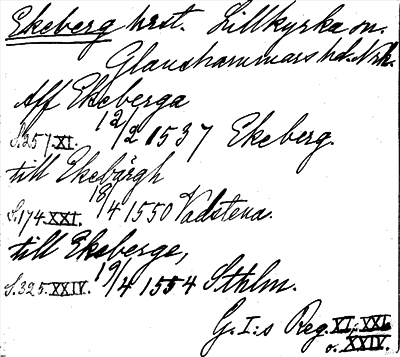 Ekeberg hrst. Lillkyrka sn.
Glanshammars hd. Nrk.
Aff Ekeberga
S. 257. XI. 12/2 1537 Ekeberg.
till Ekebärgh
S. 174. XXI. 18/4 1550 Vadstena.
till Ekeberge,
S. 325. XXIV. 19/4 1554 Sthlm.
G. I:s Reg. XI, XXI
o. XXIV.